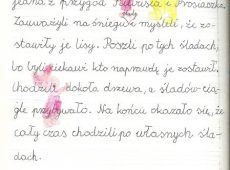 jedna z przygód Puchatka i Prosiaczka.
Zauważyli na śniegu i myśleli, że zo-
stawiły je lisy. Poszli po tych śladach,
bo byli ciekawi kto naprawdę je zostawił.
Chodzili dokoła drzewa, a śladów cią-
gle przybywało. Na końcu okazało się, że
cały czas chodzili po własnych śla-
dach.